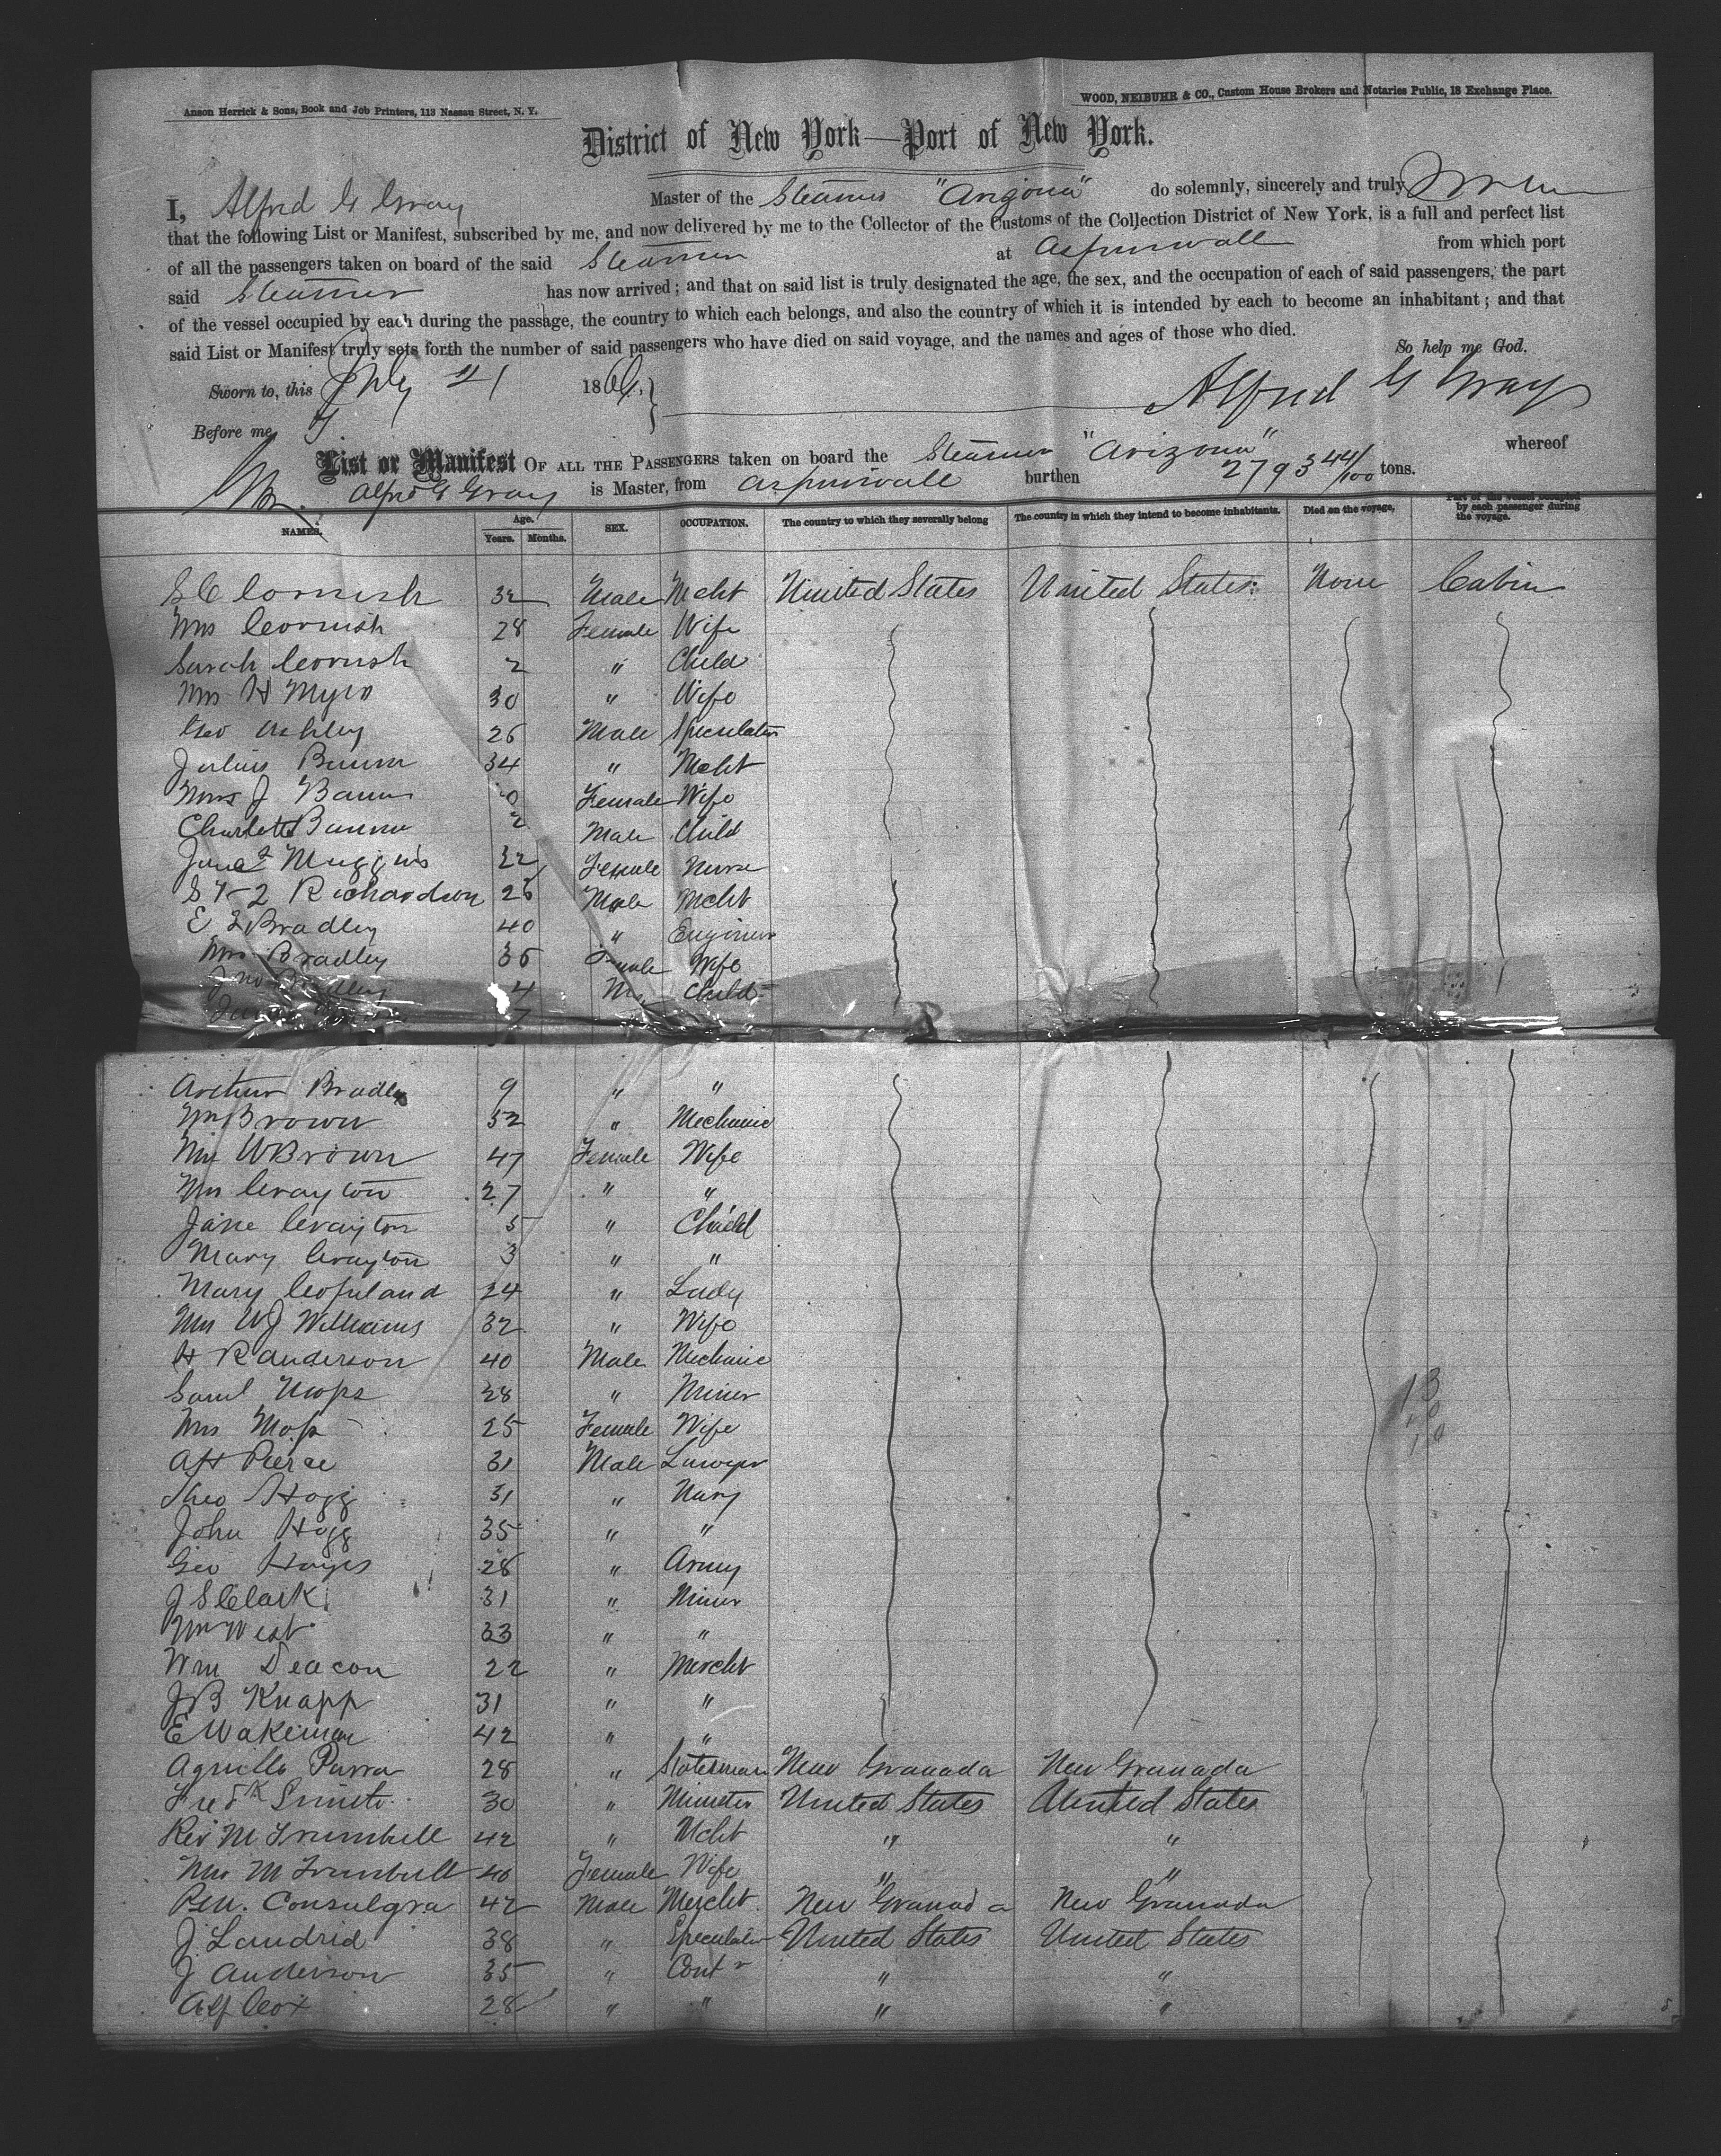 Anson Herrick & Sons, Book and Job Printers, 113 Nassau Street, N. Y.
WOOD, NEIBUHR & CO., Custom House Brokers and Notaries Public, 18 Exchange Place.
District of New York—Port of New York.
I, Alfred G Gray Master of the Steamer "Arizona" do solemnly, sincerely and truly
that the following List or Manifest, subscribed by me, and now delivered by me to the Collector of the Customs of the Collection District of New York, is a full and perfect list
of all the passengers taken on board of the said Steamer at Aspinwall from which port
said Steamer has now arrived; and that on said list is truly designated the age, the sex, and the occupation of each of said passengers, the part
of the vessel occupied by each during the passage, the country to which each belongs, and also the country of which it is intended by each to become an inhabitant; and that
said List or Manifest truly sets forth the number of said passengers who have died on said voyage, and the names and ages of those who died.
So help me God.
Sworn to, this July 21 186
Alfred G Gray
Before me,
List or Manifest OF ALL THE PASSENGERS taken on board the Steamer "Arizona" whereof
Alfred G Gray is Master, from Aspinwall burthen 2793 44/100 tons.
NAMES. Age. Years. Months. SEX. OCCUPATION. The country to which they severally belong The country in which they intend to become inhabitants. Died on the voyage, Part of the vessel occupied by each passenger during the voyage.
S C Cornish 32 Male Mcht United States United States None Cabin
Mrs Cornish 28 Female Wife
Sarah Cornish 2 " Child
Mrs H 30 " Wife
Geo Ashley 26 Male Speculator
Julius Baum 34 " Mcht
Mrs J Baum Female Wife
Baum 2 Male Child
Muggins 22 Female Nurse
Richardson 26 Male Mcht
E Bradley 40 " Engineer
Mrs Bradley 36 Female Wife
Jno Bradley 4 Child
Arthur Bradley 9 " "
Wm Brown 52 " Mechanic
Mrs W Brown 47 Female Wife
Mrs Crayton 27 " "
Jane Crayton 5 " Child
Mary Crayton 3 " "
Mary Copeland 24 " Lady
Mrs W J Williams 32 " Wife
H R Anderson 40 Male Mechanic
Saml Moss 28 " Miner
Mrs Moss 25 Female Wife
A H Pierce 31 Male Lawyer
Theo Hogg 31 " Navy
John Hogg 35 " "
Geo Hayes 28 " Army
J S Clark 31 " Miner
Wm West 33 " "
Wm Deacon 22 " Mercht
J B Knapp 31 " "
E Wakeman 42 " "
Parra 28 " Statesman New Granada New Granada
Fredk 30 " Minister United States United States
Rev M Trumbull 42 " Mcht " "
Mrs M Trumbull 40 Female Wife " "
Ben. Consulgra 42 Male Mercht New Granada New Granada
J. Landrid 38 " Speculator United States United States
J Anderson 35 " Contr " "
Alf Cox 28 " " " "